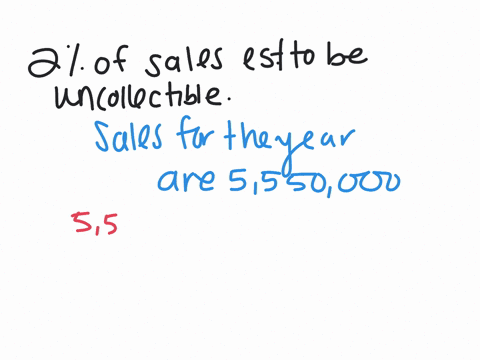 2% of sales est to be
uncollectible.
Sales for the year
are 5,550,000
5,5